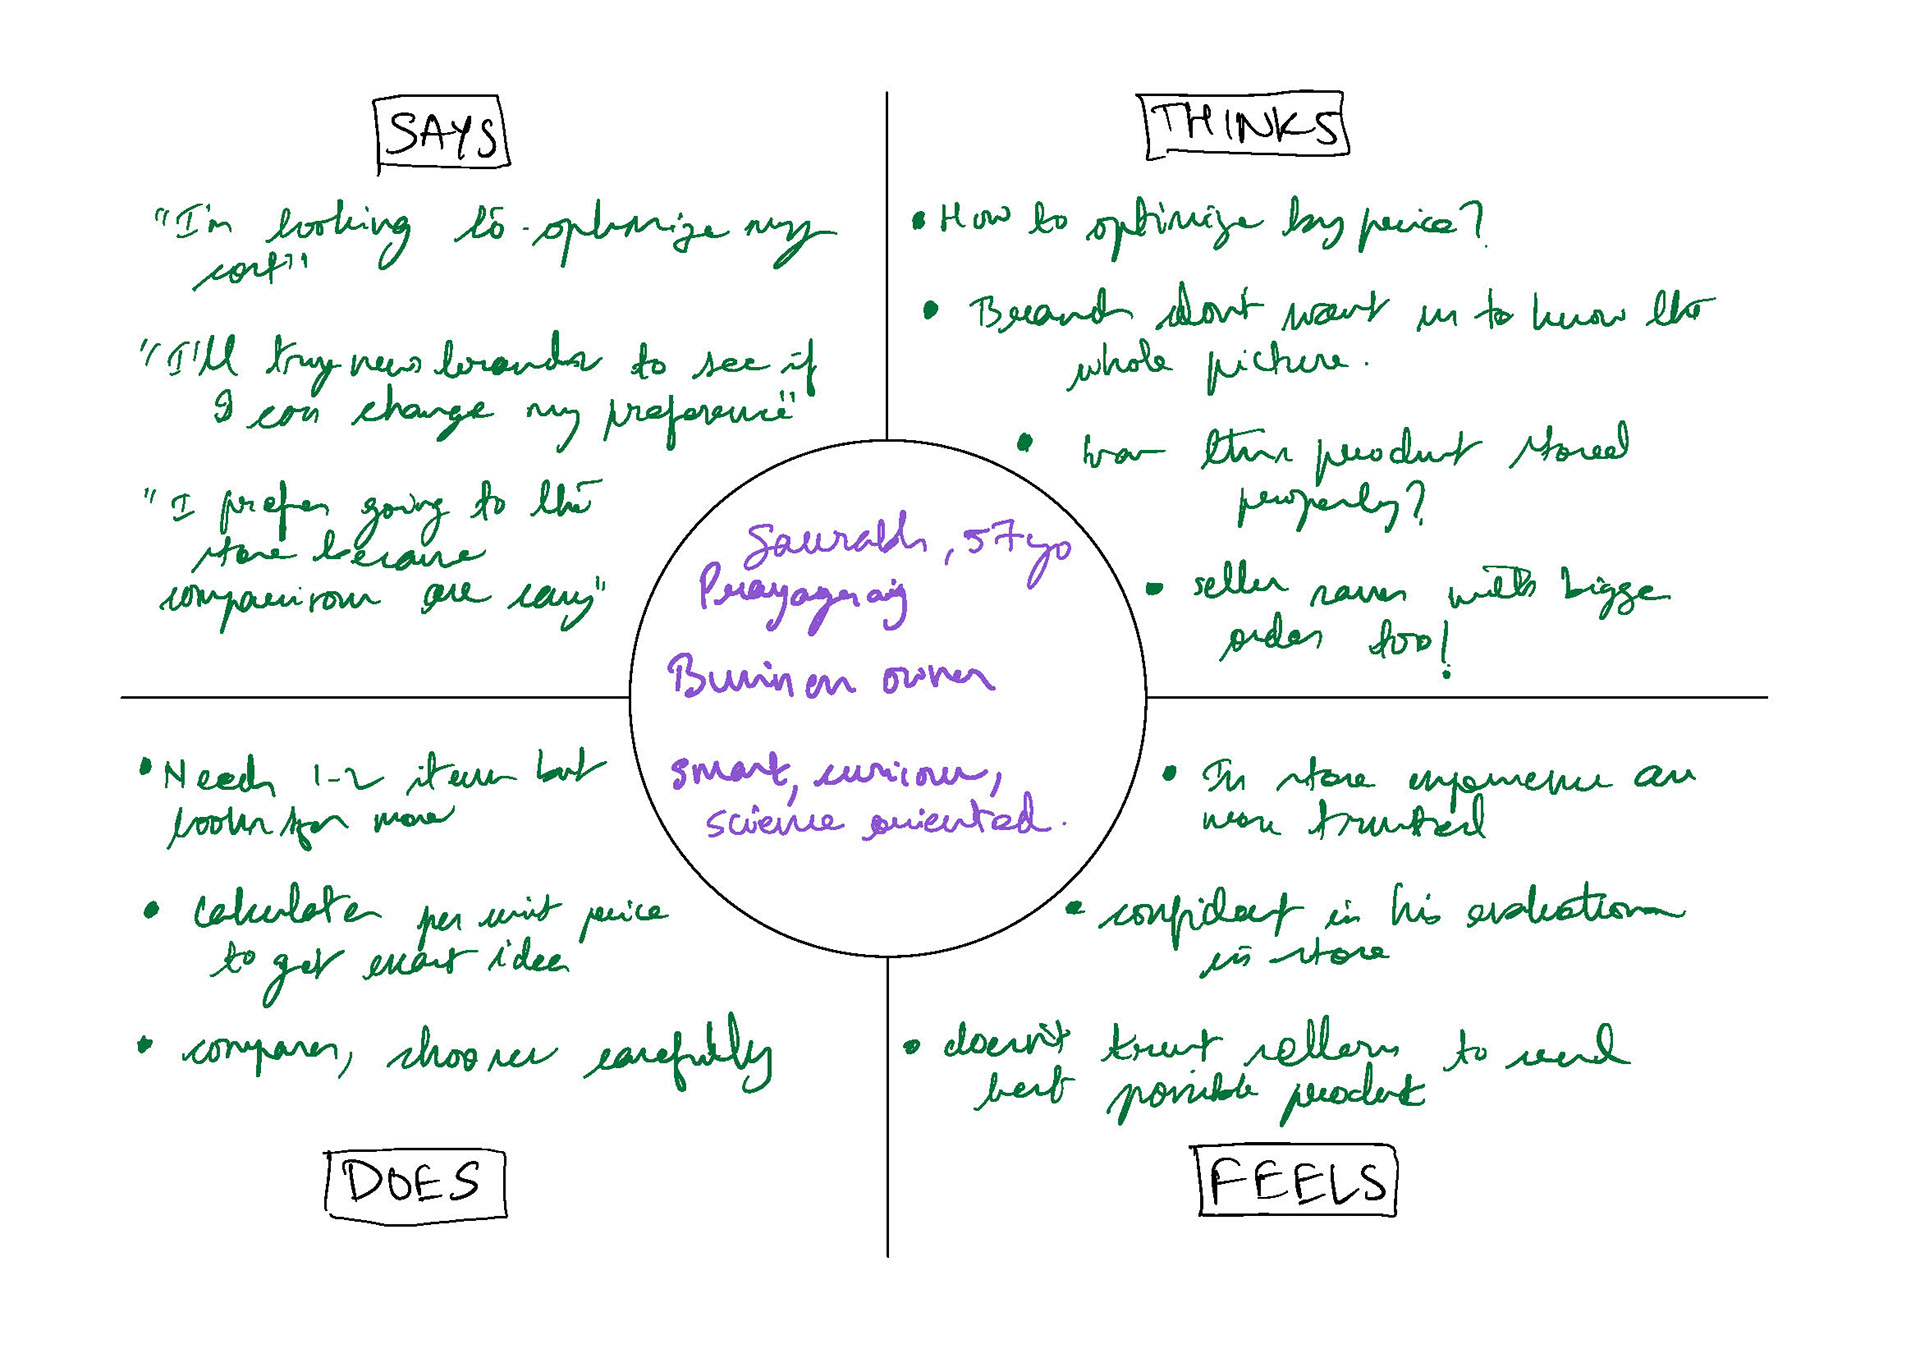 SAYS
"I'm looking to optimize my
cost"
"I'll try new brands to see if
I can change my preference"
"I prefer going to the
store because
comparisons are easy"
THINKS
• How to optimize by price?
• Brands don't want us to know the
whole picture.
• Was this product stored
properly?
• seller saves with bigger
order too!
Saurabh, 57 yo
Prayagraj
Business owner
smart, curious,
science oriented.
• Needs 1-2 items but
looks for more
• Calculates per unit price
to get exact idea
• compares, chooses carefully
DOES
• In store experience are
more trusted
• confident in his evaluations
in store
• doesn't trust sellers to send
best possible product
FEELS